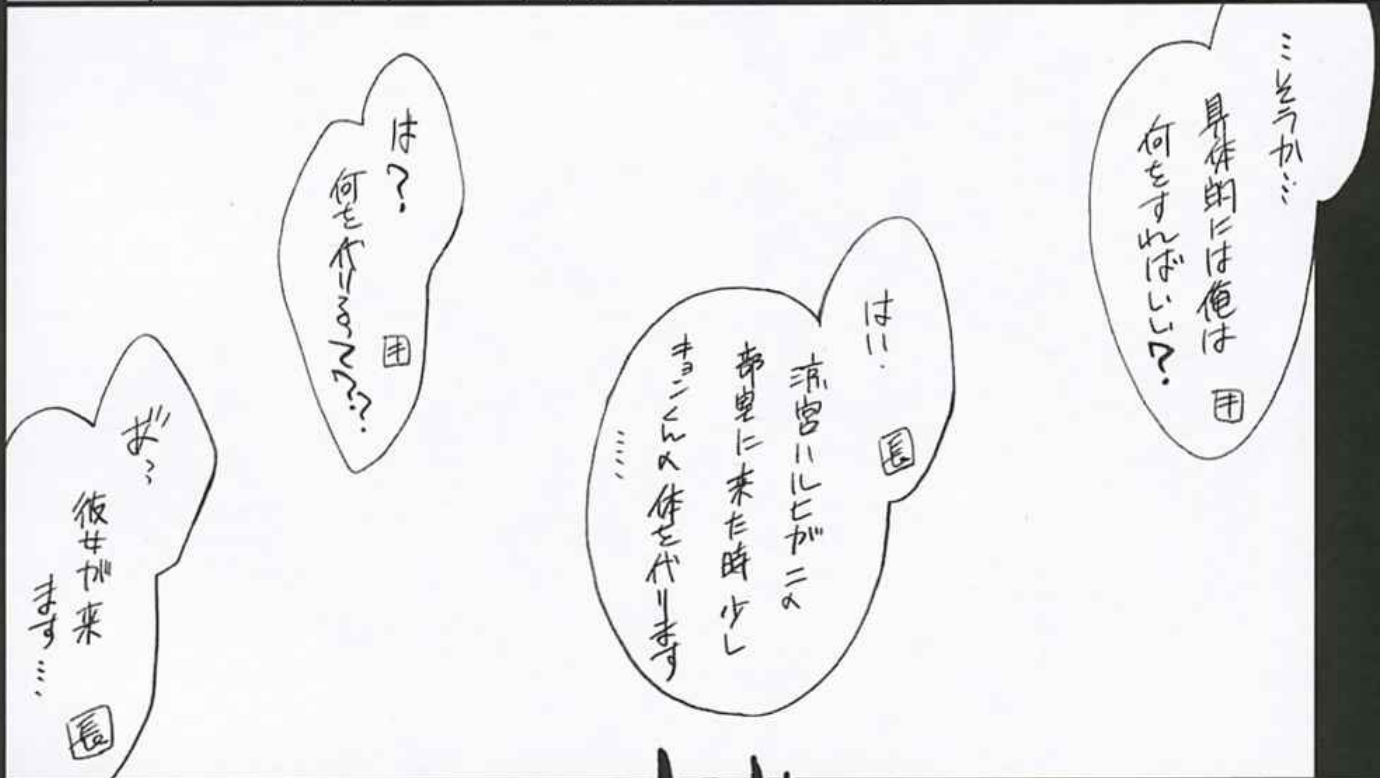 …そうか…
具体的には俺は
何をすればいい?
キ
はい.
長
涼宮ハルヒがこの
部室に来た時 少し
キョンくんの体を代ります
……
は?
何を代りるって??
キ
彼女が来
ます…
長